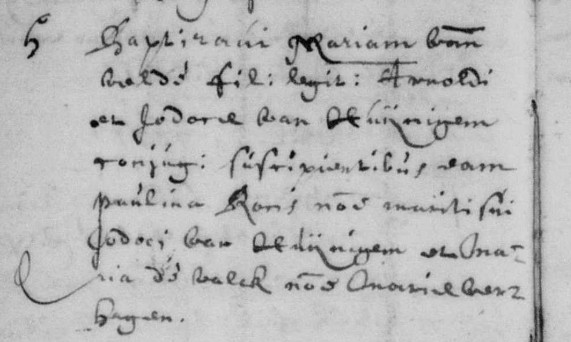 h Baptizavi Mariam van
veldé fil: legit: Arnoldi
et Jodocæ van Huijnigem
conjug: suscipientibus eam
paulina Rocis noé mariti sui
Jodoci van Huijnigem et Ma-
ria dé valck noé Mariæ ver-
hagen.